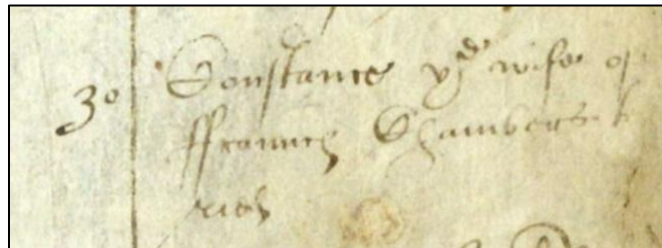 30 Constance ye wife of
ffrancis Chambers b
ried